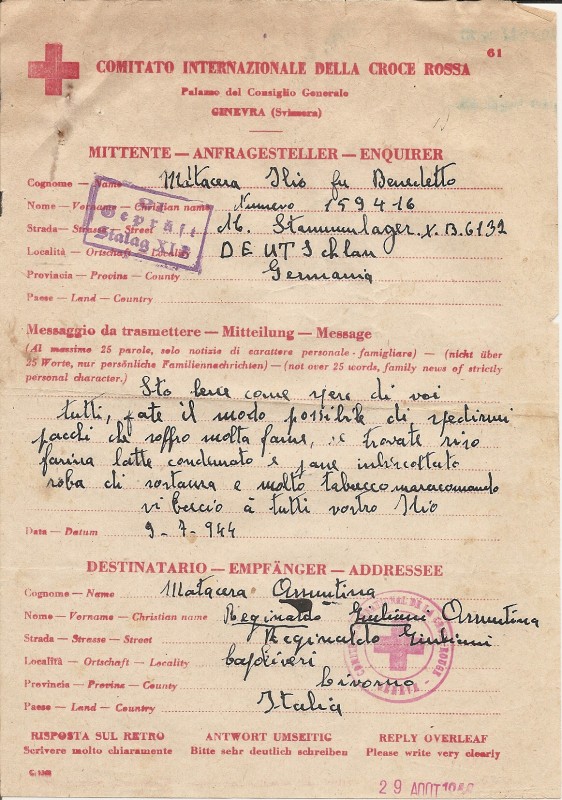 61
COMITATO INTERNAZIONALE DELLA CROCE ROSSA
Palazzo del Consiglio Generale
GINEVRA (Svizzera)
MITTENTE — ANFRAGESTELLER — ENQUIRER
Cognome — Name Matacera Ilio fu Benedetto
Nome — Vorname — Christian name Numero 159416
Strada — Strasse — Street M. Stammlager. X. B. 6132
Località — Ortschaft — Locality DEUTSchlan
Provincia — Provinz — County Germania
Paese — Land — Country
Geprüft
Stalag XI
Messaggio da trasmettere — Mitteilung — Message
(Al massimo 25 parole, solo notizie di carattere personale-famigliare) — (nicht über
25 Worte, nur persönliche Familiennachrichten) — (not over 25 words, family news of strictly
personal character.)
Sto bene come spero di voi
tutti, fate il modo possibile di spedirmi
pacchi che soffro molta fame, se trovate riso
farina latte condensato e pane
roba di sostanza e molto tabacco
vi bescio à tutti vostro Ilio
Data — Datum 9-7-944
DESTINATARIO — EMPFÄNGER — ADDRESSEE
Cognome — Name Matacera Assuntina
Nome — Vorname — Christian name Reginaldo Giuliani Assuntina
Strada — Strasse — Street Reginaldo Giuliani
Località — Ortschaft — Locality Capoliveri
Provincia — Provinz — County Livorno
Paese — Land — Country Italia
RISPOSTA SUL RETRO ANTWORT UMSEITIG REPLY OVERLEAF
Scrivere molto chiaramente Bitte sehr deutlich schreiben Please write very clearly
29 AOUT